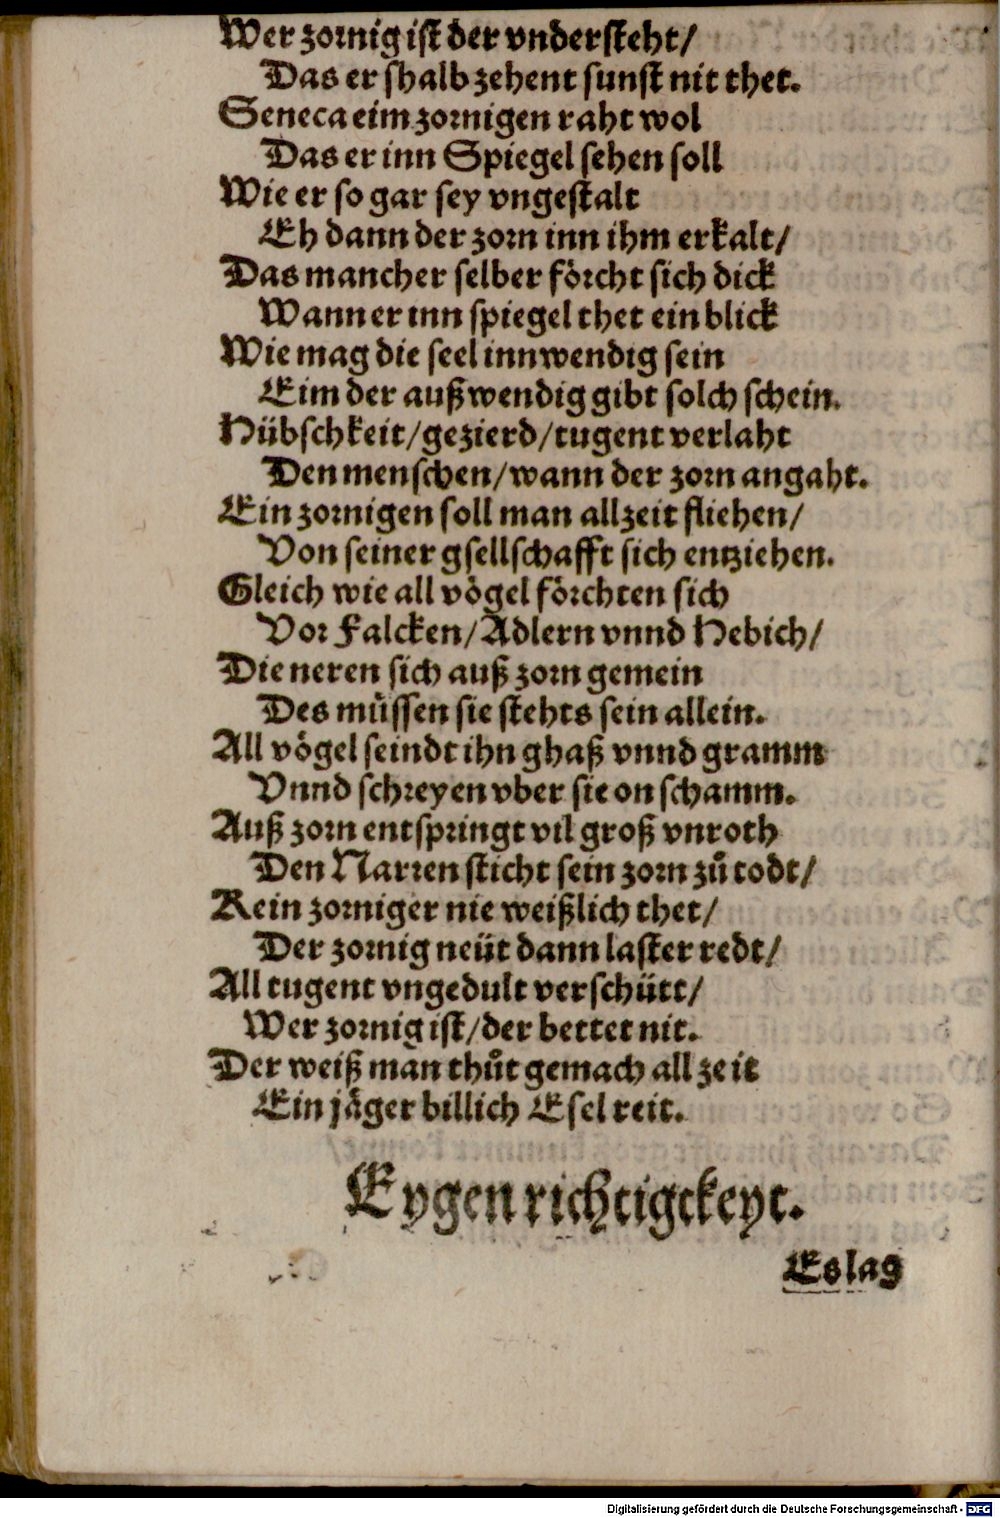 Wer zornig ist der vndersteht/
Das er shalb zehent sunst nit thet.
Seneca eim zornigen raht wol
Das er inn Spiegel sehen soll
Wie er so gar sey vngestalt
Eh dann der zorn inn ihm erkalt/
Das mancher selber förcht sich dick
Wann er inn spiegel thet ein blick
Wie mag die seel innwendig sein
Eim der außwendig gibt solch schein.
Hübschkeit/gezierd/tugent verlaht
Den menschen/wann der zorn angaht.
Ein zornigen soll man allzeit fliehen/
Von seiner gsellschafft sich entziehen.
Gleich wie all vögel förchten sich
Vor Falcken/Adlern vnnd Hebich/
Die neren sich auß zorn gemein
Des müssen sie stehts sein allein.
All vögel seindt ihn ghaß vnnd gramm
Vnnd schreyen vber sie on schamm.
Auß zorn entspringt vil groß vnroth
Den Narren sticht sein zorn zů todt/
Kein zorniger nie weißlich thet/
Der zornig neüt dann laster redt/
All tugent vngedult verschütt/
Wer zornig ist/der bettet nit.
Der weiß man thůt gemach all zeit
Ein jäger billich Esel reit.
Eygen richtigckeyt.
Es lag
Digitalisierung gefördert durch die Deutsche Forschungsgemeinschaft - DFG